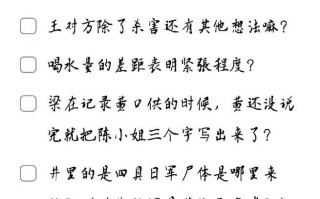 王对方除了杀害还有其他想法嘛?
喝水量的差距表明紧张程度?
梁在记录黄口供的时候,黄还没说
完就把陈小姐三个字写出来了?
井里的是四具日军尸体是哪里来